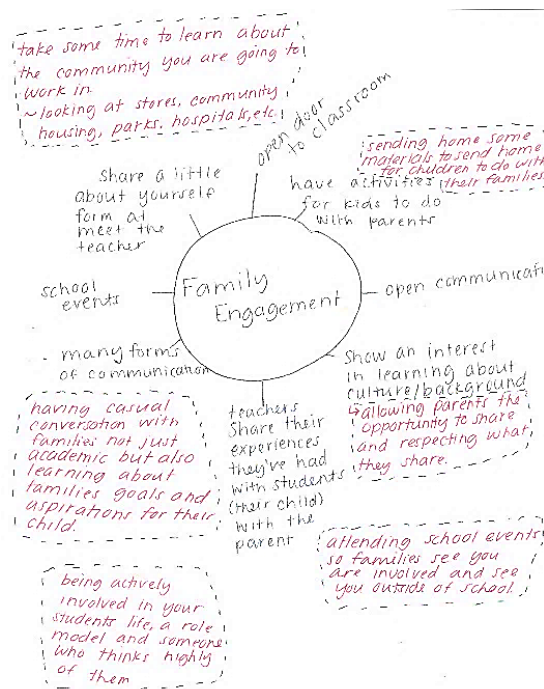 take some time to learn about
the community you are going to
work in.
~looking at stores, community
housing, parks, hospitals, etc.
open door
to classroom
sending home some
materials to send home
for children to do with
their families
share a little
about yourself
form at
meet the
teacher
have activities
for kids to do
with parents
school
events
Family
Engagement
open communicat
many forms
of communication
Show an interest
in learning about
culture/background
↳allowing parents the
opportunity to share
and respecting what
they share.
having casual
conversation with
families not just
academic but also
learning about
families goals and
aspirations for their
child.
teachers
Share their
experiences
they've had
with students
(their child)
with the
parent
attending school events
so families see you
are involved and see
you outside of school.
being actively
involved in your
students life, a role
model and someone
who thinks highly
of them